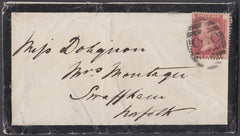 Miss Dolignon
Mrs Montagu
Swaffham
Norfolk